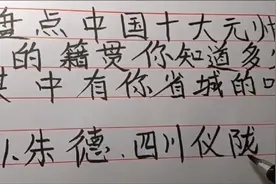 盘点中国十大元帅
的籍贯你知道多
中有你省城的
1、朱德、四川仪陇